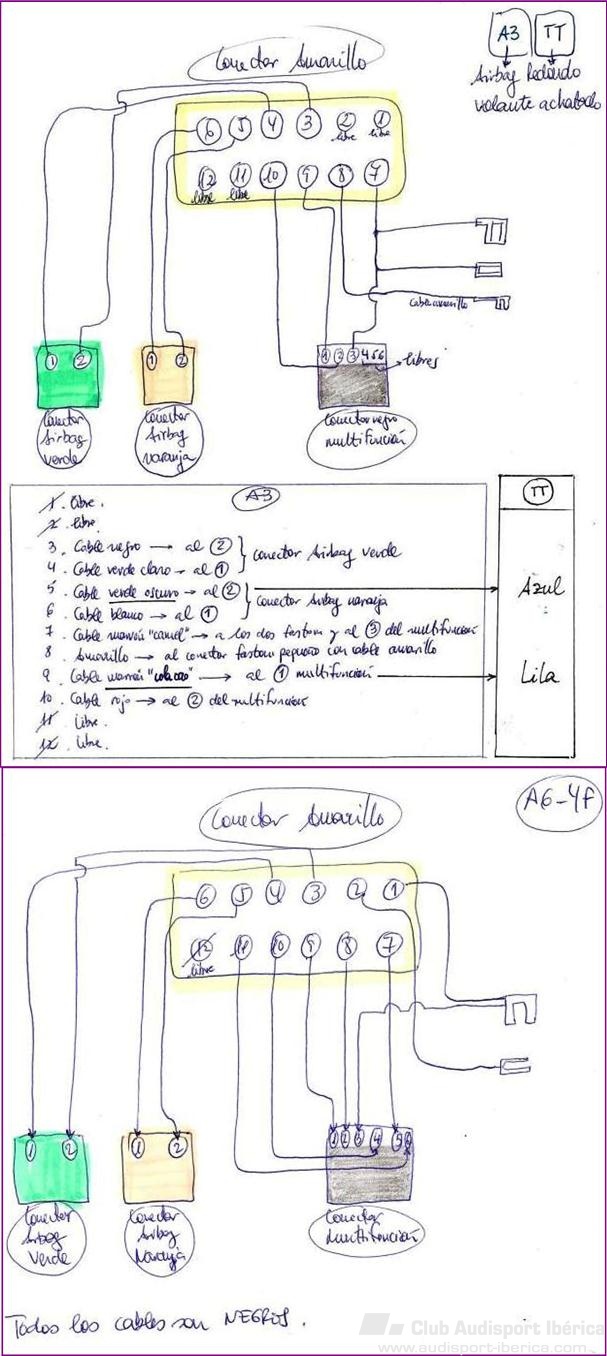 A3
TT
Airbag Redondo
volante achatado
Conector Amarillo
6 5 4 3 2 1
libre libre
12 11 10 9 8 7
libre libre
cable amarillo
1 2
1 2
1 2 3 4 5 6
libres
Conector
Airbag
verde
Conector
Airbag
naranja
Conector negro
multifunción
A3
TT
1. libre.
2. libre.
3. Cable negro → al 2
4. Cable verde claro → al 1
conector Airbag verde
5. Cable verde oscuro → al 2
6. Cable blanco → al 1
conector Airbag naranja
Azul
7. Cable marrón "camel" → a los dos fastom y al 3 del multifunción
8. Amarillo → al conector fastom pequeño con cable amarillo
9. Cable marrón "colacao" → al 1 multifunción
Lila
10. Cable rojo → al 2 del multifunción
11. libre.
12. libre.
Conector Amarillo
A6-4f
6 5 4 3 2 1
12 11 10 9 8 7
libre
1 2
1 2
1 2 3 4 5 6
Conector
Airbag
Verde
Conector
Airbag
Naranja
Conector
multifunción
Todos los cables son NEGROS.
Club Audisport Ibérica
www.audisport-iberica.com